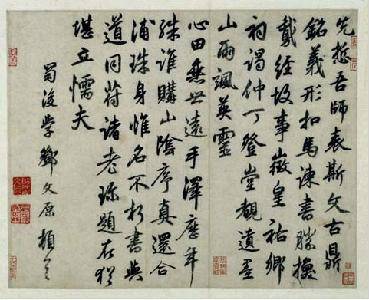 先哲吾師表斯文古鼎
銘義形扣馬諫書勝換
鵞經故事徵皇祐鄉
祠謁仲丁登堂觀遺墨
山雨颯英靈
心田無世遠手澤歷年
殊誰購山陰序真還合
浦珠身惟名不朽書與
道同符諸老珎題在猶
堪立懦夫
蜀後學鄧文原頓首